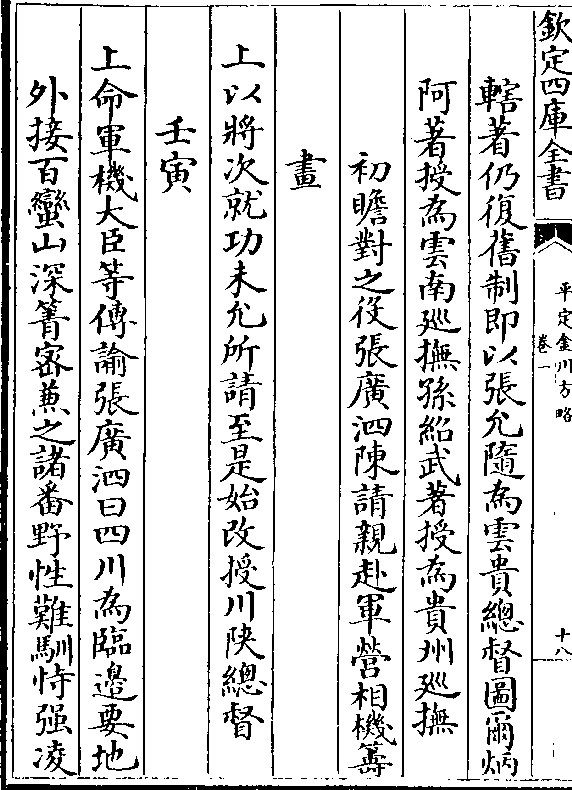 欽定四庫全書
平定金川方略
卷一
十八
轄著仍復舊制即以張允隨為雲貴總督圖爾炳
阿著授為雲南廵撫孫紹武著授為貴州廵撫
初瞻對之役張廣泗陳請親赴軍營相機籌
畫
上以將次就功未允所請至是始改授川陝總督
壬寅
上命軍機大臣等傳諭張廣泗曰四川為臨邊要地
外接百蠻山深箐密兼之諸番野性難馴恃强凌